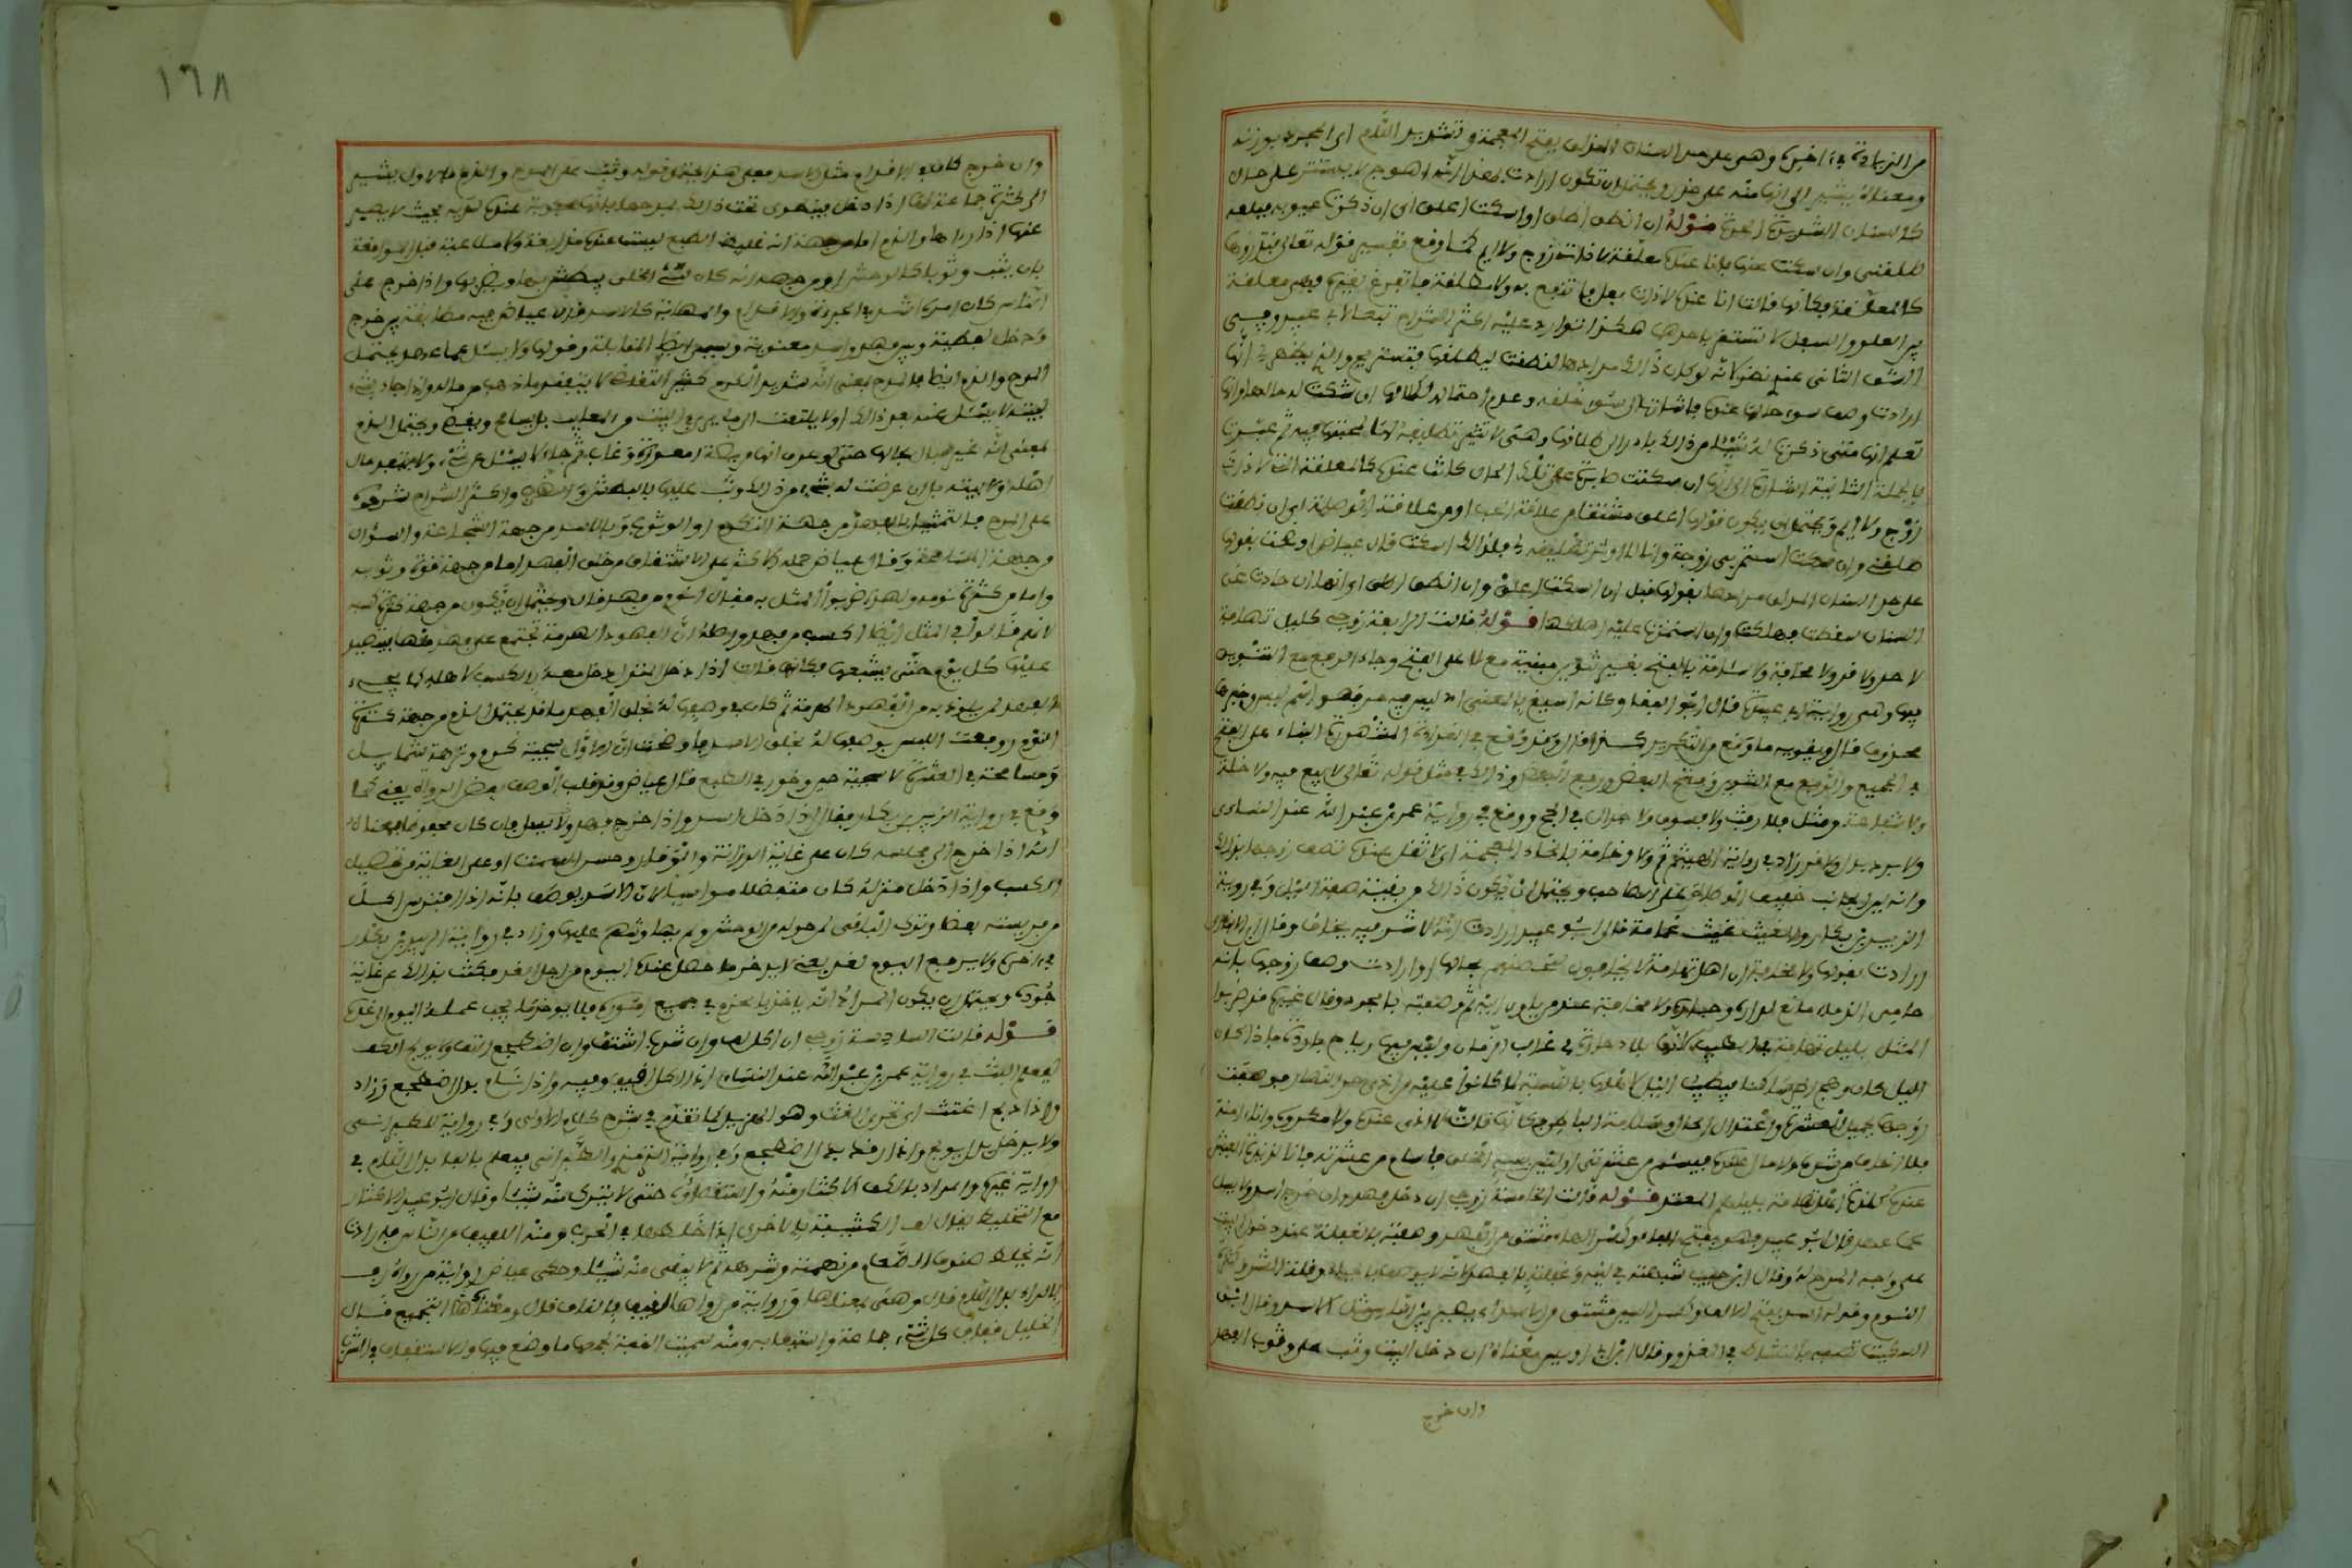 من الزيادة في اخره وهي على حد السنان المذلق بفتح المعجمة وتشديد اللام اي المجرد بوزنه
ومعناه يشير الى انها منه على حذر ويحتمل ان تكون ارادت بهذا انه اهوج لا يستقر على حال
كالسنان الشديد الحدة قوله ان انطق اطلق وان اسكت اعلق اي ان ذكرت عيوبه فبلغه
طلقني وان سكت عنها فانا عنده معلقة لا ذات زوج ولا ايم كما وقع في تفسير قوله تعالى فتذروها
كالمعلقة فكانها قالت انا عنده لا ذات بعل فانتفع به ولا مطلقة فاتفرغ لغيره فهي معلقة
بين العلو والسفل لا تستقر باحدهما هكذا توارد عليه اكثر الشراح تبعا لابي عبيد وفي
الشق الثاني عندي نظر لانه لو كان ذلك مرادها لنطقت ليطلقها فتستريح والذي يظهر لي انها
ارادت وصف سوء حالها عنده فاشارت الى سوء خلقه وعدم احتماله لكلامها ان شكت له حالها وانها
تعلم انها متى ذكرت له شيئا من ذلك بادر الى طلاقها وهي لا تؤثر تطليقه لها لمحبتها فيه ثم عبرت
بالجملة الثانية اشارة الى انها ان سكتت صابرة على تلك الحال كانت عنده كالمعلقة التي لا ذات
زوج ولا ايم ويحتمل ان يكون قولها اعلق مشتقا من علاقة الحب او من علاقة الوصلة اي ان نطقت
طلقني وان سكت استمر بي زوجة وانا لا اوثر تطليقه لي فلذلك اسكت قال عياض اوضحت بقولها
على حد السنان المذلق مرادها بقولها قبل ان اسكت اعلق وان انطق اطلق اي انها ان حادت عن
السنان سقطت فهلكت وان استمرت عليه اهلكها قوله قالت الرابعة زوجي كليل تهامة
لا حر ولا قر ولا مخافة ولا سآمة بالفتح بغير تنوين مبنية مع لا على الفتح وجاء الرفع مع التنوين
فيها وهي رواية ابي عبيد قال ابو البقا وكانه اشبع بالمعنى اي ليس فيه حر فهو اسم ليس وخبرها
محذوف قال ويقويه ما وقع من التكرير كذا قال وقد وقع في القراءة المشهورة البناء على الفتح
في الجميع والرفع مع التنوين وفتح البعض ورفع البعض وذلك في مثل قوله تعالى لا بيع فيه ولا خلة
ولا شفاعة ومثل فلا رفث ولا فسوق ولا جدال في الحج ووقع في رواية عمر بن عبد الله عند النسائي
ولا برد بدل ولا قر زاد في رواية الهيثم ولا وخامة بالخاء المعجمة اي لا ثقل عنده تصف زوجها بذلك
وانه لين الجانب خفيف الوطأة على الصاحب ويحتمل ان يكون ذلك من بقية صفة الليل وفي رواية
الزبير بن بكار والغيث غيث غمامة قال ابو عبيد ارادت انه لا شر فيه يخاف وقال ابن الانباري
ارادت بقولها ولا مخافة ان اهل تهامة لا يخافون لتحصنهم بجبالها او ارادت وصف زوجها بانه
حامي الذمار مانع لداره وجاره ولا مخافة عند من ياوي اليه ثم وصفته بالجود وقال غيره قد ضربوا
المثل بليل تهامة في الطيب لانها بلاد حارة في غالب الزمان وليس فيها رياح باردة فاذا كان
الليل كان وهج الحر ساكنا فيطيب الليل لاهلها بالنسبة لما كانوا عليه من اذى حر النهار فوصفت
زوجها بجميل العشرة واعتدال الحال وسلامة الباطن فكانها قالت لا اذى عنده ولا مكروه وانا امنة
فلا اخاف من شره ولا ملل عنده فيسئم من عشرتي او ليس بسيء الخلق فاسأم من عشرته فانا لذيذة العيش
عنده كلذة اهل تهامة بليلهم المعتدل قوله قالت الخامسة زوجي ان دخل فهد وان خرج اسد ولا يسئل
عما عهد قال ابو عبيد فهد بفتح الفاء وكسر الهاء مشتق من الفهد وصفته بالغفلة عند دخول البيت
على وجه المدح له وقال ابن حبيب شبهته في لينه وغفلته بالفهد لانه يوصف بالحياء وقلة الشر وكثرة
النوم وقوله اسد بفتح الالف وكسر السين مشتق من الاسد اي يصير بين الناس مثل الاسد وقال ابن
السكيت تصفه بالنشاط في الغزو وقال ابن ابي اويس معناه ان دخل البيت وثب علي وثوب الفهد
وان خرج
١٦٨
وان خرج كان في الاقدام مثل الاسد فعلى هذا يحتمل قوله وثب على المدح والذم فالاول يشير
الى كثرة جماعه لها اذا دخل فينطوي تحت ذلك تمدحها بانها محبوبة عنده لديه بحيث لا يصبر
عنها اذا رآها والذم اما من جهة انه غليظ الطبع ليست عنده مداعبة ولا ملاعبة قبل المواقعة
بل يثب وثوبا كالوحش او من جهة انه كان سيئ الخلق يبطش بها ويضربها واذا خرج على
الناس كان امره اشد في الجرأة والاقدام والمهابة كالاسد قال عياض فيه مطابقة بين خرج
ودخل لفظية وبين فهد واسد معنوية ويسمى ايضا المقابلة وقولها ولا يسئل عما عهد يحتمل
المدح والذم ايضا فالمدح بمعنى انه شديد الكرم كثير التغاضي لا يتفقد ما ذهب من ماله واذا جاء بشيء
لبيته لا يسئل عنه بعد ذلك او لا يلتفت الى ما يرى في البيت من المعايب بل يسامح ويغضي ويحتمل الذم
بمعنى انه غير مبال بحالها حتى لو عرف انها مريضة او معوزة وغاب ثم جاء لا يسئل عن شيء ولا يتفقد حال
اهله ولا بيته بل ان عرضت له بشيء من ذلك وثب عليها بالبطش والضرب واكثر الشراح شرحوه
على المدح فالتمثيل بالفهد من جهة التكرم او الوثوب وبالاسد من جهة الشجاعة والسؤال
من جهة المسامحة وقال عياض حمله الاكثر على الاشتقاق من خلق الفهد اما من جهة قوة وثوبه
واما من كثرة نومه ولهذا ضربوا المثل به فقالوا انوم من فهد قال ويحتمل ان يكون من جهة كثرة كسبه
لانهم قالوا في المثل ايضا اكسب من فهد واصله ان الفهود الهرمة تجتمع على فهد منها فتي فيتصيد
عليها كل يوم حتى يشبعها فكانها قالت اذا دخل المنزل دخل معه بالكسب لاهله كما يجيء
الفهد لمن يلوذ به من الفهود الهرمة ثم لما كان في وصفها له بخلق الفهد ما قد يحتمل الذم من جهة كثرة
النوم رفعت اللبس بوصفها له بخلق الاسد فاوضحت ان الاول سجية كرم ونزهة شمايل
ومسامحة في العشرة لا سجية جبن وخور في الطبع قال عياض وقد قلب الوصف بعض الرواة يعني كما
وقع في رواية الزبير بن بكار فقال اذا دخل اسد واذا خرج فهد ولا يسئل فان كان محفوظا فمعناه
انه اذا خرج الى مجلسه كان على غاية الرزانة والوقار وحسن السمت او على الغاية من تحصيل
الكسب واذا دخل منزله كان متفضلا مواسيا لان الاسد يوصف بانه اذا افترس اكل
من فريسته بعضا وترك الباقي لمن حوله من الوحش ولم يهاوشهم عليها وزاد في رواية الزبير بن بكار
في اخره ولا يرفع اليوم لغد يعني لا يدخر ما حصل عنده اليوم من اجل الغد فكنت بذلك عن غاية
جوده ويحتمل ان يكون المراد انه ياخذ بالحزم في جميع اموره فلا يؤخر ما يجب عمله اليوم الى غده
قوله قالت السادسة زوجي ان اكل لف وان شرب اشتف وان اضطجع التف ولا يولج الكف
ليعلم البث في رواية عمر بن عبد الله عند النسائي اذا اكل اقتف وفيه واذا نام بدل اضطجع وزاد
واذا ذبح اغتث اي تحرى الغث وهو الهزيل كما تقدم في شرح كلام الاولى وفي رواية للطبراني
ولا يدخل بدل يولج واذا رقد بدل اضطجع وفي رواية الترمذي والطبراني فيعلم بالفاء بدل اللام في
رواية غيره والمراد باللف الاكثار منه واستقصاؤه حتى لا يترك منه شيئا وقال ابو عبيد الاكثار
مع التخليط يقال لف الكتيبة بالاخرى اذا خلطها في الحرب ومنه اللفيف من الناس فارادت
انه يخلط صنوف الطعام من نهمته وشرهه ثم لا يبقي منه شيئا وحكى عياض رواية من رواه رف
بالراء بدل اللام قال وهي بمعناها ورواية من رواها اقتف بالقاف قال ومعناه التجميع قال
الخليل قفاف كل شيء جماعه واستيعابه ومنه سميت القفة لجمعها ما وضع فيها والاشتفاف في الشرب